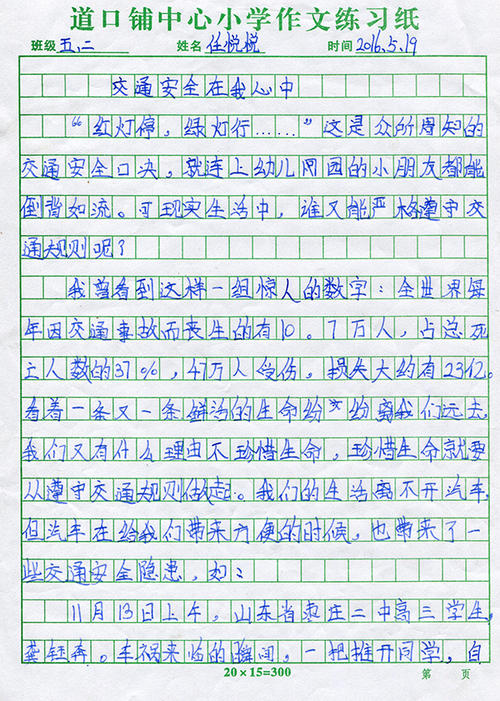 道口铺中心小学作文练习纸
班级 五、二 姓名 任悦悦 时间 2016.5.19
交通安全在我心中
“红灯停，绿灯行……”这是众所周知的
交通安全口决，就连上幼儿园的小朋友都能
倒背如流。可现实生活中，谁又能严格遵守交
通规则呢？
我曾看到这样一组惊人的数字：全世界每
年因交通事故而丧生的有10。7万人，占总死
亡人数的37%，47万人受伤。损失大约有23亿。
看着一条又一条鲜活的生命纷纷离我们远去，
我们又有什么理由不珍惜生命，珍惜生命就要
从遵守交通规则做起。我们的生活离不开汽车，
但汽车在给我们带来方便的时候，也带来了一
些交通安全隐患，如：
11月13日上午，山东省枣庄二中高三学生，
龚钰犇。车祸来临的瞬间，一把推开同学，自
20×15=300 第 页